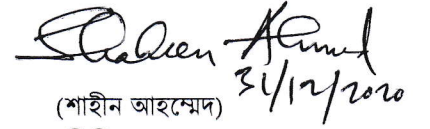 Shaheen Ahmed
31/12/2020
(শাহীন আহম্মেদ)